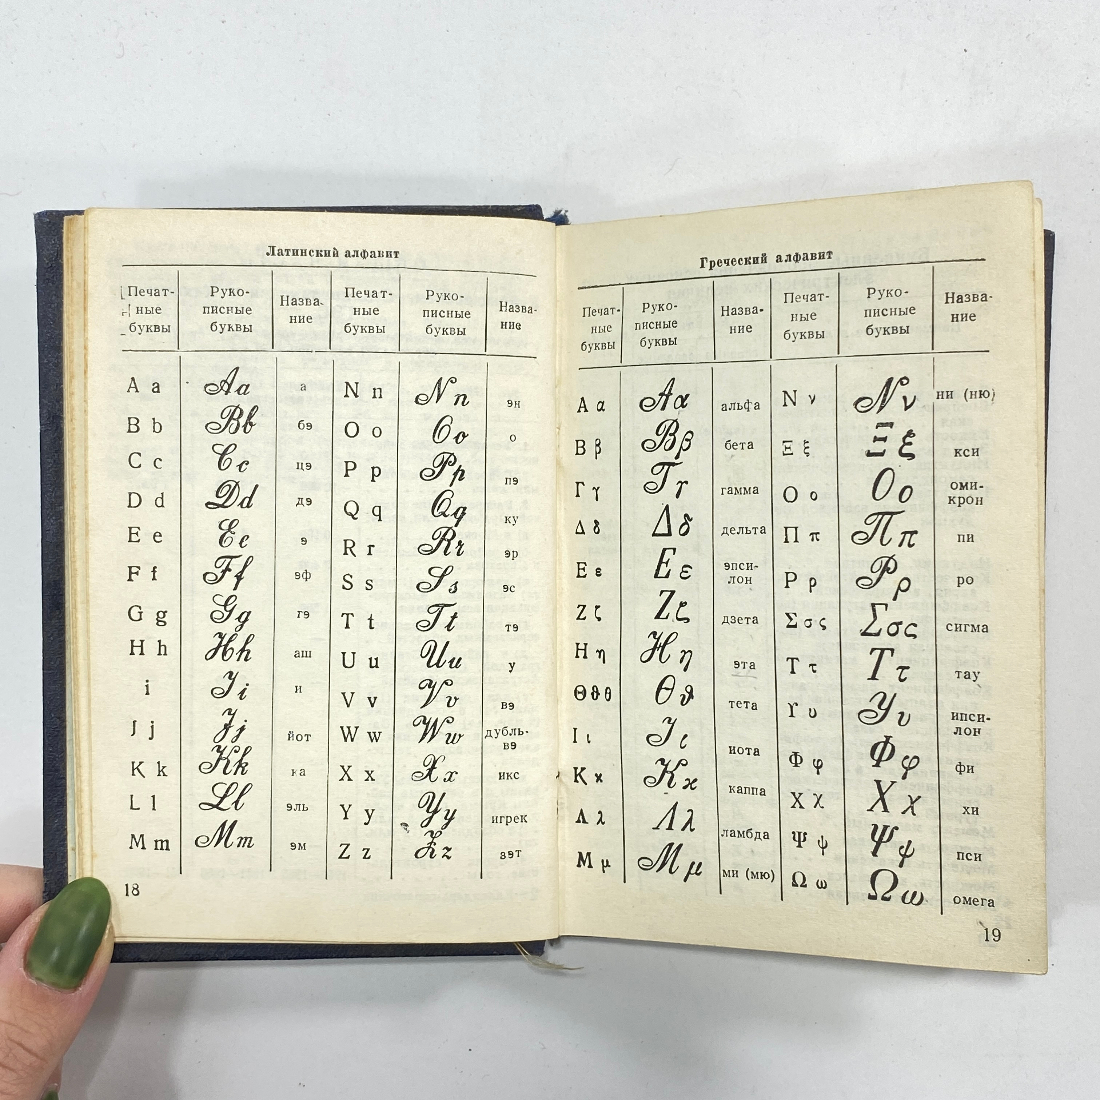 Латинский алфавит
Печат-ные буквы Руко-писные буквы Назва-ние Печат-ные буквы Руко-писные буквы Назва-ние
A a Aa а N n Nn эн
B b Bb бэ O o Oo о
C c Cc цэ P p Pp пэ
D d Dd дэ Q q Qq ку
E e Ee э R r Rr эр
F f Ff эф S s Ss эс
G g Gg гэ T t Tt тэ
H h Hh аш U u Uu у
i Ii и V v Vv вэ
J j Jj йот W w Ww дубль-вэ
K k Kk ка X x Xx икс
L l Ll эль Y y Yy игрек
M m Mm эм Z z Zz зэт
18
Греческий алфавит
Печат-ные буквы Руко-писные буквы Назва-ние Печат-ные буквы Руко-писные буквы Назва-ние
Α α Αα альфа Ν ν Νν ни (ню)
Β β Ββ бета Ξ ξ Ξξ кси
Γ γ Γγ гамма Ο ο Οο оми-крон
Δ δ Δδ дельта Π π Ππ пи
Ε ε Εε эпси-лон Ρ ρ Ρρ ро
Ζ ζ Ζζ дзета Σ σ ς Σσς сигма
Η η Ηη эта Τ τ Ττ тау
Θ ϑ θ Θϑ тета Υ υ Υυ ипси-лон
Ι ι Ιι иота Φ φ Φφ фи
Κ κ Κκ каппа Χ χ Χχ хи
Λ λ Λλ ламбда Ψ ψ Ψψ пси
Μ μ Μμ ми (мю) Ω ω Ωω омега
19